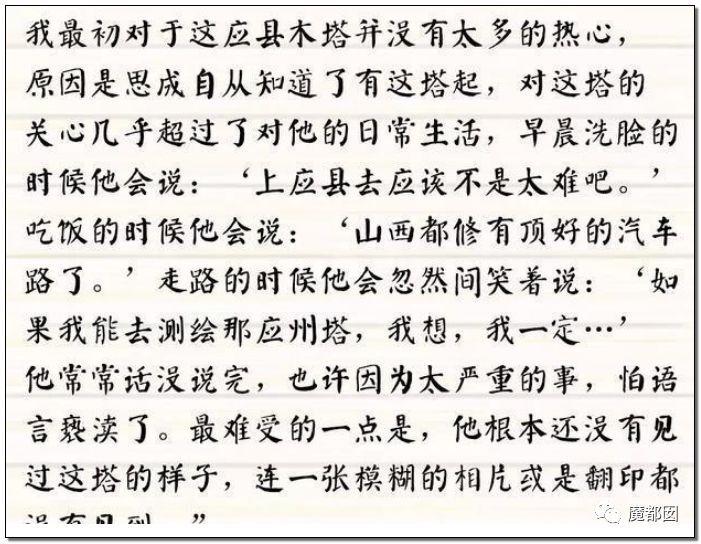 我最初对于这应县木塔并没有太多的热心，
原因是思成自从知道了有这塔起，对这塔的
关心几乎超过了对他的日常生活，早晨洗脸的
时候他会说：‘上应县去应该不是太难吧。’
吃饭的时候他会说：‘山西都修有顶好的汽车
路了。’走路的时候他会忽然间笑着说：‘如
果我能去测绘那应州塔，我想，我一定…’
他常常话没说完，也许因为太严重的事，怕语
言亵渎了。最难受的一点是，他根本还没有见
过这塔的样子，连一张模糊的相片或是翻印都
没有见到。”
魔都囡